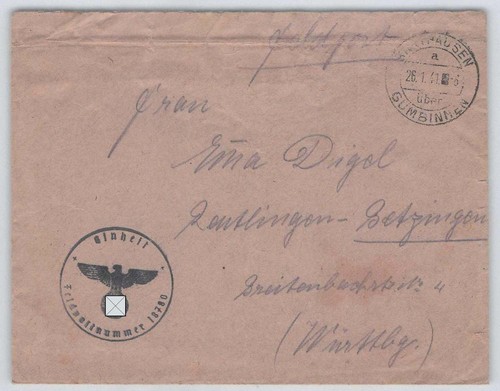 Feldpost
HAUSEN
a
26.1.41
über
GUMBINNEN
Frau
Emma Digel
Reutlingen-Betzingen
Breitenbachstr. 4
(Württbg.)
Einheit
Feldpostnummer 18780